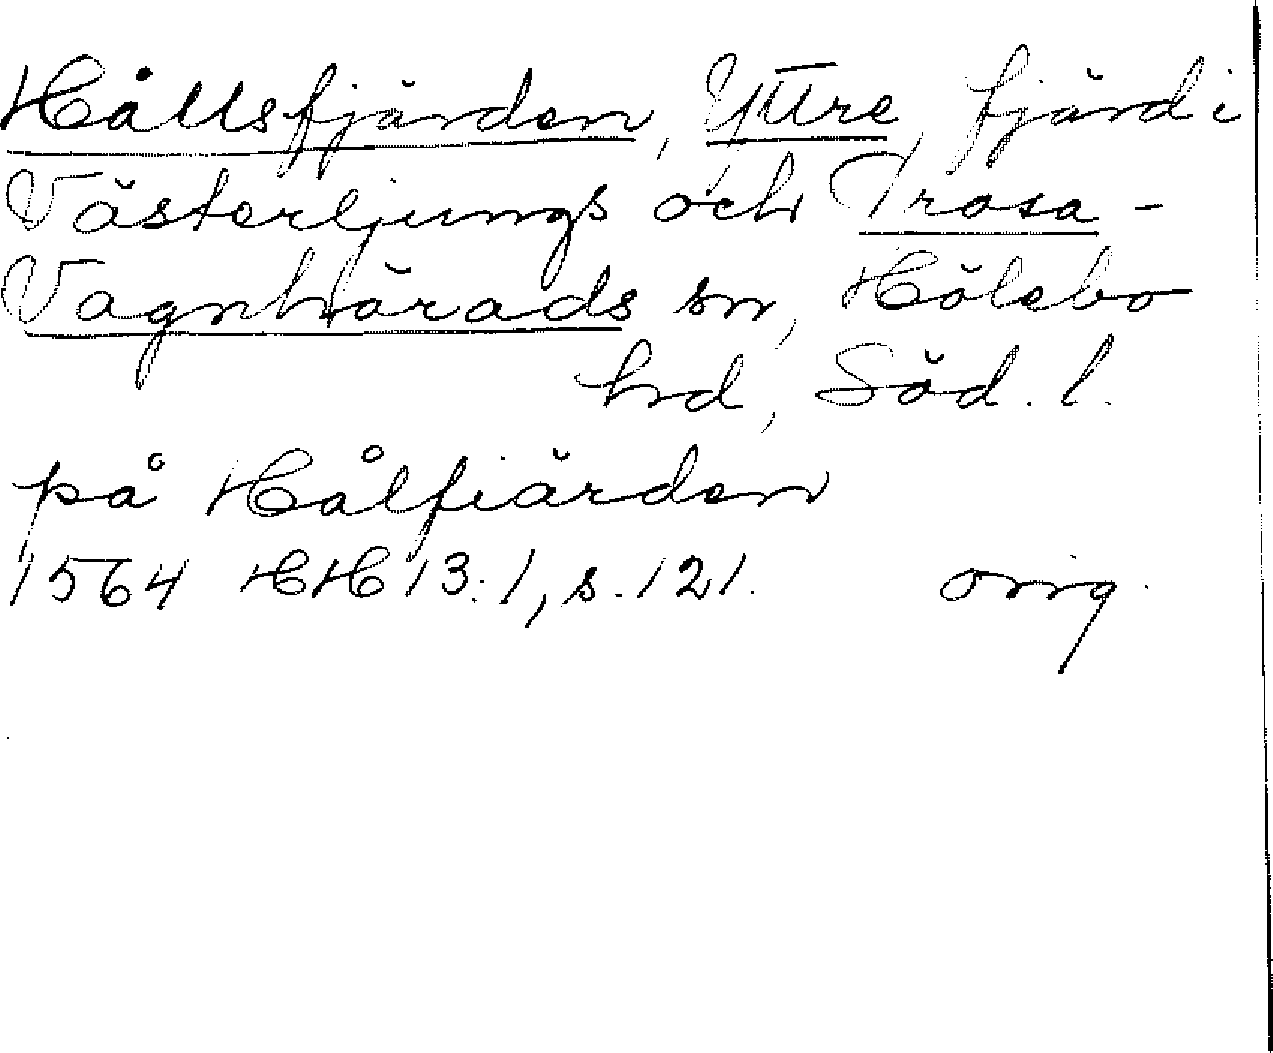 Hållsfjärden, Yttre, fjärd i
Västerljungs och Trosa-
Vagnhärads sn, Hölebo
hd, Söd. l.
på Hålfiärden
1564 HH 13:1, s. 121. orig.